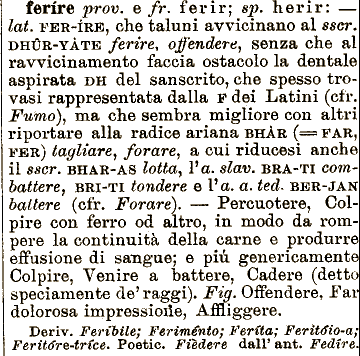 feríre prov. e fr. ferir; sp. herir: —
lat. FER-ÍRE, che taluni avvicinano al sscr.
DHÛR-YÀTE ferire, offendere, senza che al
ravvicinamento faccia ostacolo la dentale
aspirata DH del sanscrito, che spesso tro-
vasi rappresentata dalla F dei Latini (cfr.
Fumo), ma che sembra migliore con altri
riportare alla radice ariana BHAR (= FAR,
FER) tagliare, forare, a cui riducesi anche
il sscr. BHAR-AS lotta, l'a. slav. BRA-TI com-
battere, BRI-TI tondere e l'a. a. ted. BER-JAN
battere (cfr. Forare). — Percuotere, Col-
pire con ferro od altro, in modo da rom-
pere la continuità della carne e produrre
effusione di sangue; e piú genericamente
Colpire, Venire a battere, Cadere (detto
speciamente de' raggi). Fig. Offendere, Far
dolorosa impressione, Affliggere.
Deriv. Feribile; Feriménto; Feríta; Feritóio-a;
Feritóre-tríce. Poetic. Fièdere dall' ant. Fedíre.